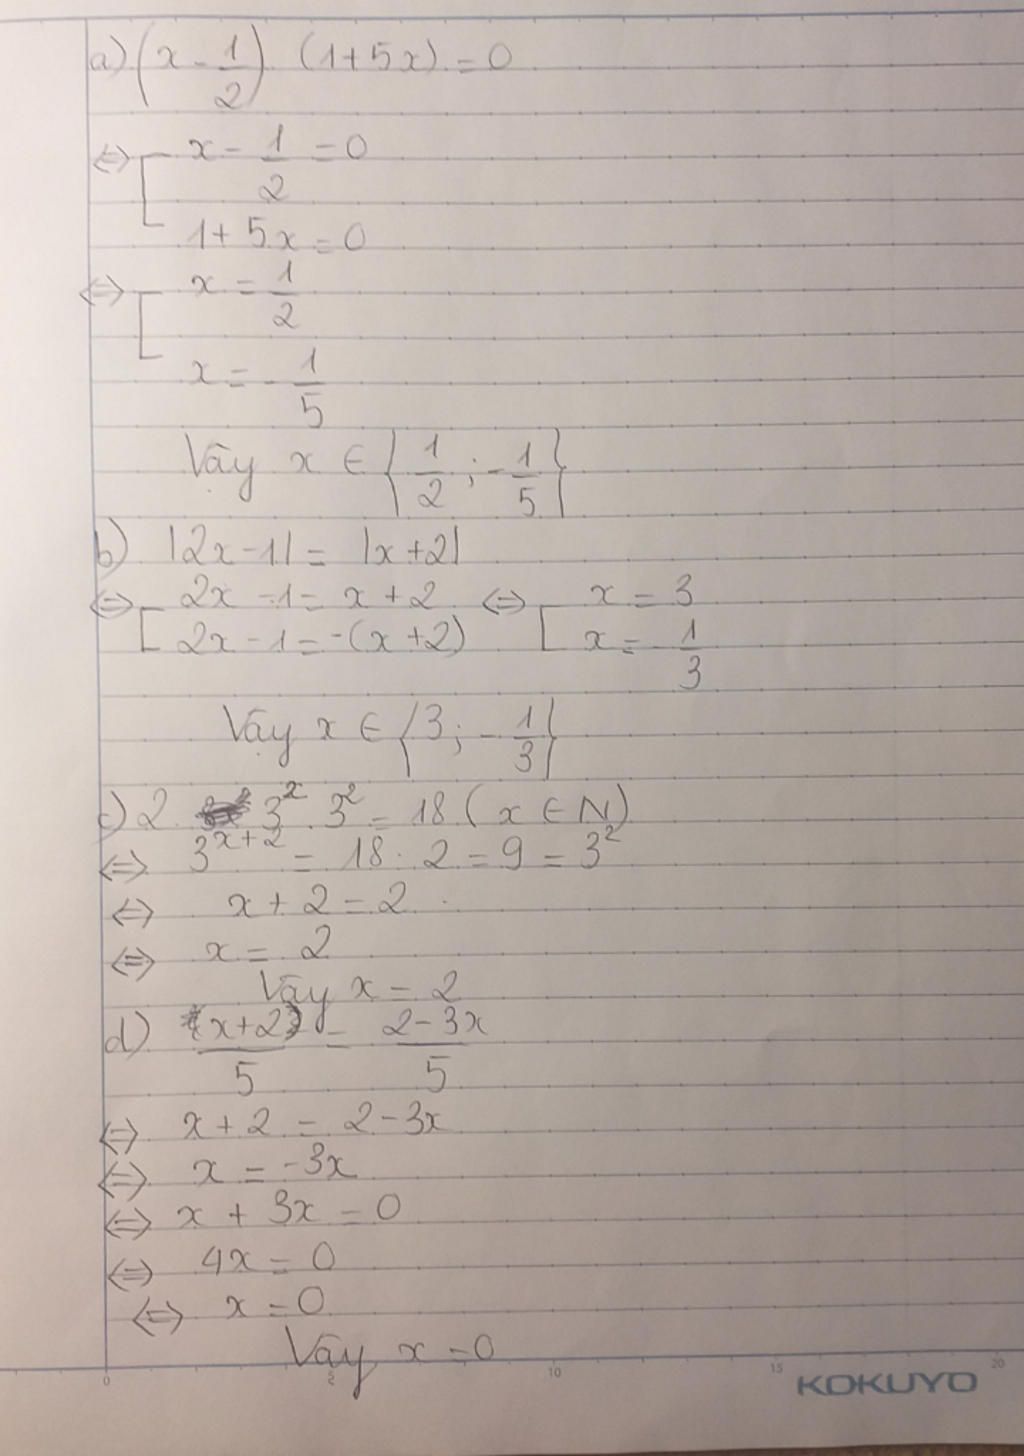 a) (x - 1/2) (1+5x) = 0
⇔ [ x - 1/2 = 0
1 + 5x = 0
⇔ [ x = 1/2
x = - 1/5
Vậy x ∈ { 1/2 ; - 1/5 }
b) |2x - 1| = |x + 2|
⇔ [ 2x - 1 = x + 2 ⇔ [ x = 3
2x - 1 = -(x + 2) x = - 1/3
Vậy x ∈ { 3 ; - 1/3 }
c) 2 . 3^x . 3^2 = 18 ( x ∈ N)
⇔ 3^(x+2) = 18 : 2 = 9 = 3^2
⇔ x + 2 = 2
⇔ x = 2
Vậy x = 2
d) (x+2)/5 = (2 - 3x)/5
⇔ x + 2 = 2 - 3x
⇔ x = -3x
⇔ x + 3x = 0
⇔ 4x = 0
⇔ x = 0
Vậy x = 0
0 5 10 15 20
KOKUYO